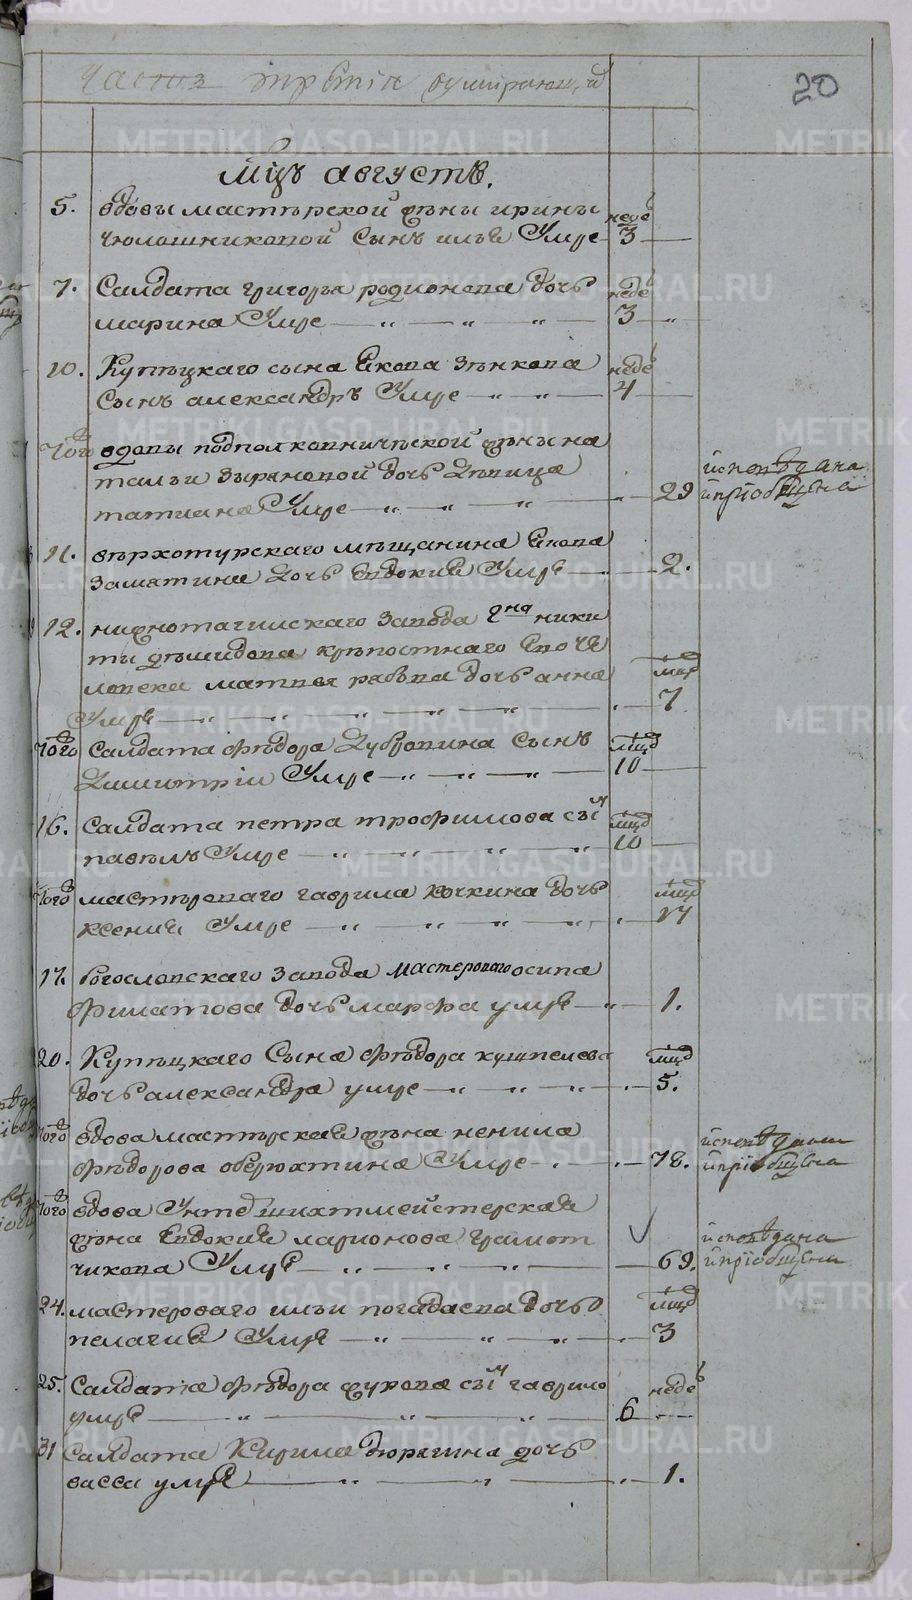 Часть третia оумирающий
20
мцъ августъ.
5. вдовы мастерской жены ирины неде
чюлошниковой сынъ илья Умре 3
7. Салдата григорья родионова дочь неде
марина Умре — „ — „ — „ 3 „
10. Купецкаго сына Якова зенкова неде
сынъ александръ Умре — „ — „ — 4
того вдовы подполковнической жены на исповѣдана
тальи зыряновой дочь девица
татиана Умре — „ — „ — „ 29 и прiобщена
11. верхотурскаго мѣщанина Якова
Замятина дочь Евдокия Умре — 2.
12. нижнотагилскаго завода гдна ники
ты демидова крѣпостнаго Ево че
ловека матвея рабова дочь анна мцъ
Умре — „ — „ — „ — „ 7
того Салдата федора Дубровина Сынъ мцъ
Димитрiи Умре — „ — „ — „ 10
16. Салдата петра трофимова сынъ мцъ
павелъ Умре — „ — „ — „ 10
того мастероваго гаврила кочкина дочь мцъ
ксения Умре — „ — „ — „
17. богословскаго завода мастероваго осипа
филатова дочь марфа умре — „ 1.
20. Купецкаго Сына федора кушпелева мцъ
дочь александра умре — „ — „ 5.
того вдова мастерская жена ненила исповѣдана
федорова оберюхтина Умре — 78. и прiобщена
того вдова Унтеd шихтмейстерская
жена Евдокия ларионова грамот исповѣдана
чикова Умре — „ — „ 69. и прiобщена
24. мастероваго ильи погадаева дочь мцъ
пелагия Умре — „ — „ — „ 3
25. Салдата федора жукова сынъ гаврило неде
умре — „ — „ — „ 6
31 Салдата Кирила дюрягина дочь
васса умре — „ — „ 1.
METRIKI.GASO-URAL.RU